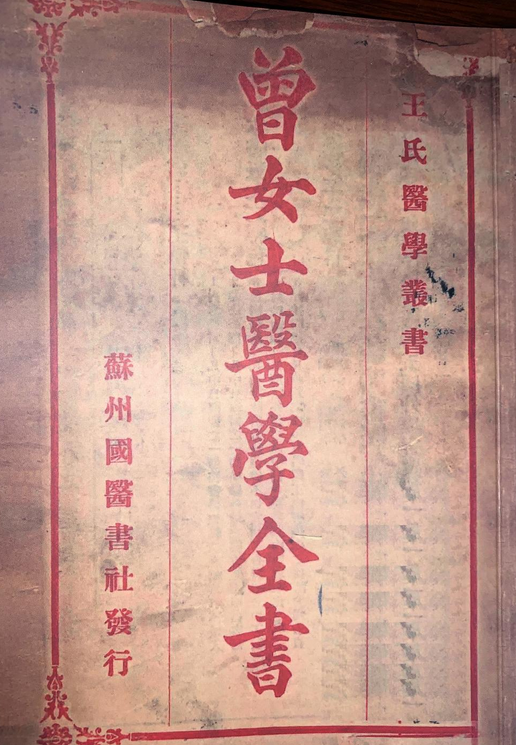 王氏醫學叢書
曾女士醫學全書
蘇州國醫書社發行